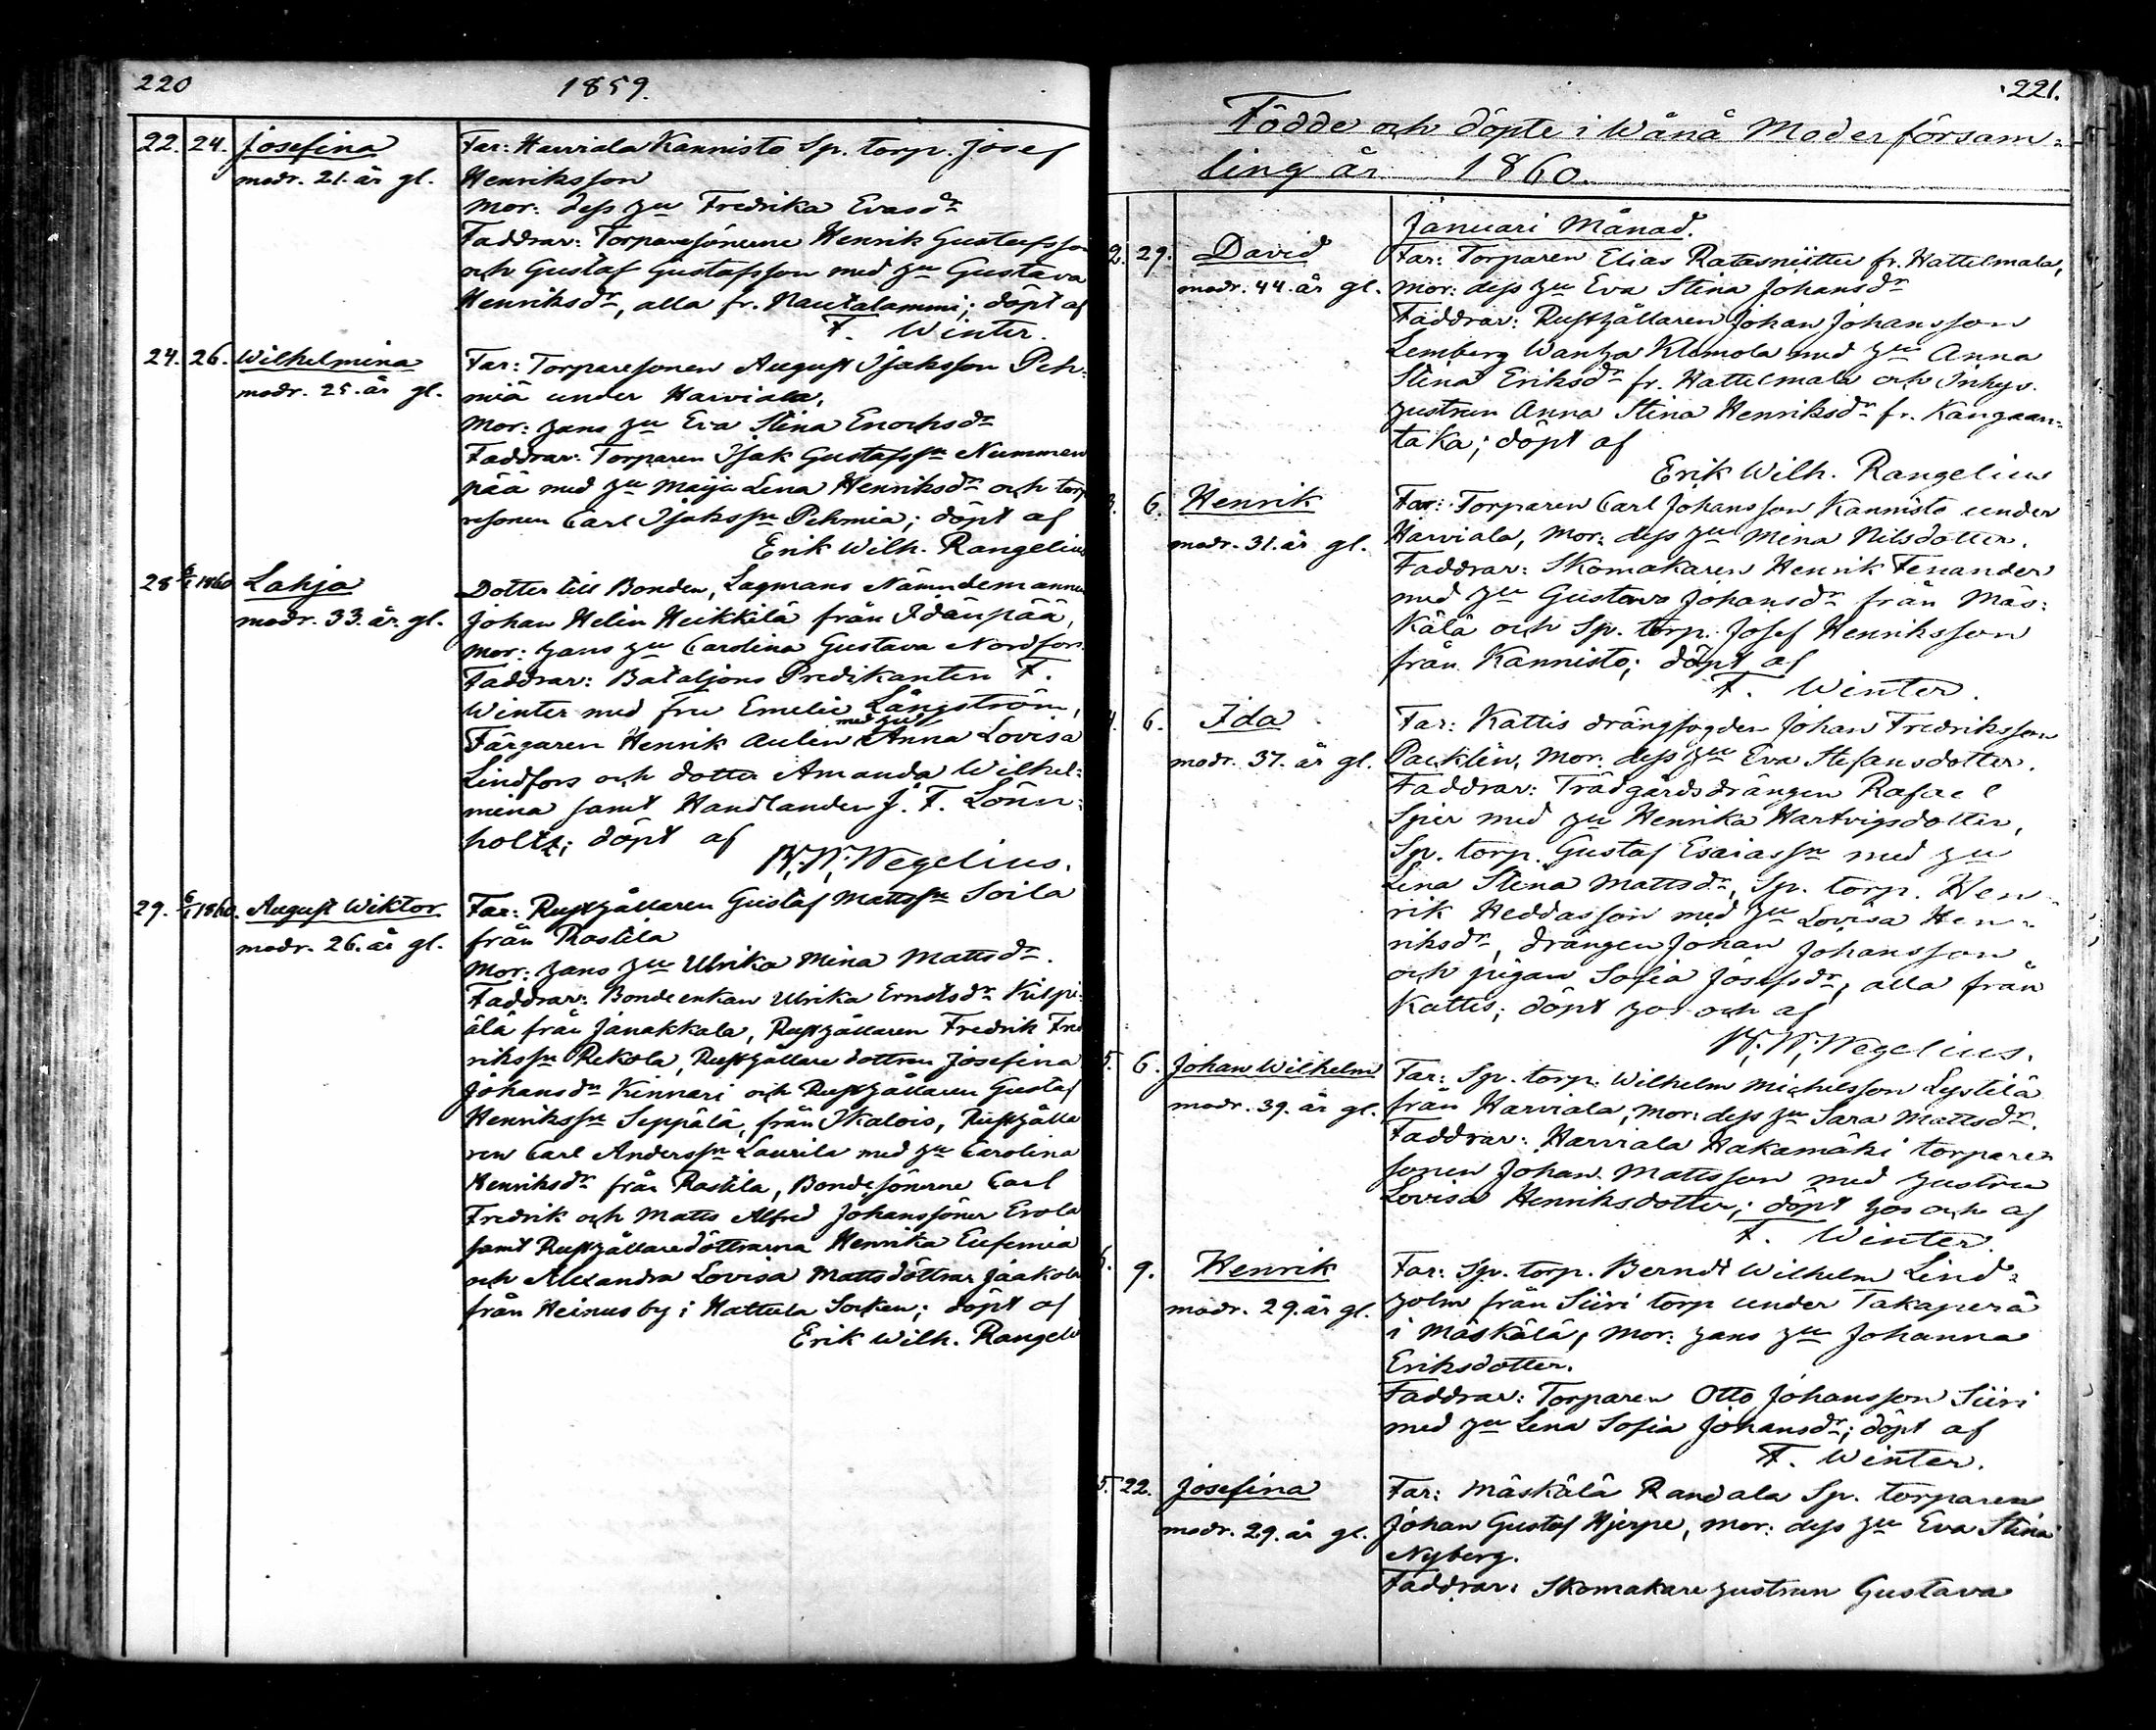 220
1859.
22. 24. Josefina
modr. 21. år gl.
Far: Harviala Kannisto Sp. torp. Josef
Henriksson
Mor: dess hu Fredrika Evasdr
Faddrar: Torparesönerne Henrik Gustafsson
och Gustaf Gustafsson med hu Gustava
Henriksdr, alla fr. Rautalammi; döpt af
F. Winter.
24. 26. Wilhelmina
modr. 25. år gl.
Far: Torparesonen August Isaksson Peh-
miä under Harviala,
Mor: hans hu Eva Stina Enochsdr
Faddrar: Torparen Isak Gustafssn Nummen
pää med hu Maija Lena Henriksdr och torp
resonen Carl Isakssn Pehmiä; döpt af
Erik Wilh. Rangelius
28 6/1 1860 Lahja
modr. 33. år. gl.
Dotter till Bonden, Lagmans Nämndemannen
Johan Helin Heikkilä från Idänpää,
Mor: hans hu Carolina Gustava Nordfors.
Faddrar: Bataljons Predikanten F.
Winter med fru Emelie Långström,
Färgaren Henrik Aulen med hu Anna Lovisa
Lindfors och dotter Amanda Wilhel-
mina samt Handlanden J. F. Lönn-
holtz; döpt af
W. W. Wegelius.
29. 6/1 1860. August Wiktor
modr. 26. år gl.
Far: Rusthållaren Gustaf Mattssn Soila
från Rastila
Mor: hans hu Ulrika Mina Mattsdr.
Faddrar: Bondeenkan Ulrika Ernstsdr Kilpi-
älä från Janakkala, Rusthållaren Fredrik Fred
rikssn Rekola, Rusthållare dottren Josefina
Johansdr Kinnari och Rusthållaren Gustaf
Henrikssn Seppälä, från Ikalois, Rusthålla
ren Carl Anderssn Laurila med hu Carolina
Henriksdr från Rastila, Bondesönerne Carl
Fredrik och Matts Alfred Johanssöner Erola
samt Rusthållaredöttrarna Henrika Eufemia
och Alexandra Lovisa Mattsdöttrar Jaakola
från Heinus by i Hattula Socken; döpt af
Erik Wilh. Rangeli
221.
Födde och döpte i Wånå Moderförsam-
ling år 1860.
Januari Månad.
2. 29. David
modr. 44. år gl.
Far: Torparen Elias Ratasniittu fr. Hattelmala,
Mor: dess hu Eva Stina Johansdr
Faddrar: Rusthållaren Johan Johansson
Lemberg Wanha Klemola med hu Anna
Stina Eriksdr fr. Hattelmala och Inhys.
hustrun Anna Stina Henriksdr fr. Kangaan-
taka; döpt af
Erik Wilh. Rangelius
3. 6. Henrik
modr. 31. år gl.
Far: Torparen Carl Johansson Kannisto under
Harviala, Mor: dess hu Mina Nilsdotter.
Faddrar: Skomakaren Henrik Fenander
med hu Gustava Johansdr från Mäs-
kälä och Sp. torp. Josef Henriksson
från Kannisto; döpt af
F. Winter.
4. 6. Ida
modr. 37. år gl.
Far: Kattis drängfogden Johan Fredriksson
Packlén, Mor: dess hu Eva Stefansdotter.
Faddrar: Trädgårdsdrängen Rafael
Spir med hu Henrika Hartvigsdotter,
Sp. torp. Gustaf Esaiassn med hu
Lena Stina Mattsdr, Sp. torp. Hen-
rik Heddasson med hu Lovisa Hen-
riksdr, drängen Johan Johansson
och pigan Sofia Josefsdr, alla från
Kattis; döpt hos och af
W. W. Wegelius.
5. 6. Johan Wilhelm
modr. 39. år gl.
Far: Sp. torp. Wilhelm Michelsson Lystilä
från Harviala, Mor: dess hu Sara Mattsdr.
Faddrar: Harviala Hakamäki torpare-
sonen Johan Mattsson med hustru
Lovisa Henriksdotter; döpt hos och af
F. Winter.
6. 9. Henrik
modr. 29. år gl.
Far: Sp. torp. Berndt Wilhelm Lind-
holm från Siiri torp under Takaperä
i Mäskälä, Mor: hans hu Johanna
Eriksdotter.
Faddrar: Torparen Otto Johansson Siiri
med hu Lena Sofia Johansdr; döpt af
F. Winter.
5. 22. Josefina
modr. 29. år gl.
Far: Mäskälä Randala Sp. torparen
Johan Gustaf Hjerpe, Mor: dess hu Eva Stina
Nyberg.
Faddrar: Skomakare hustrun Gustava